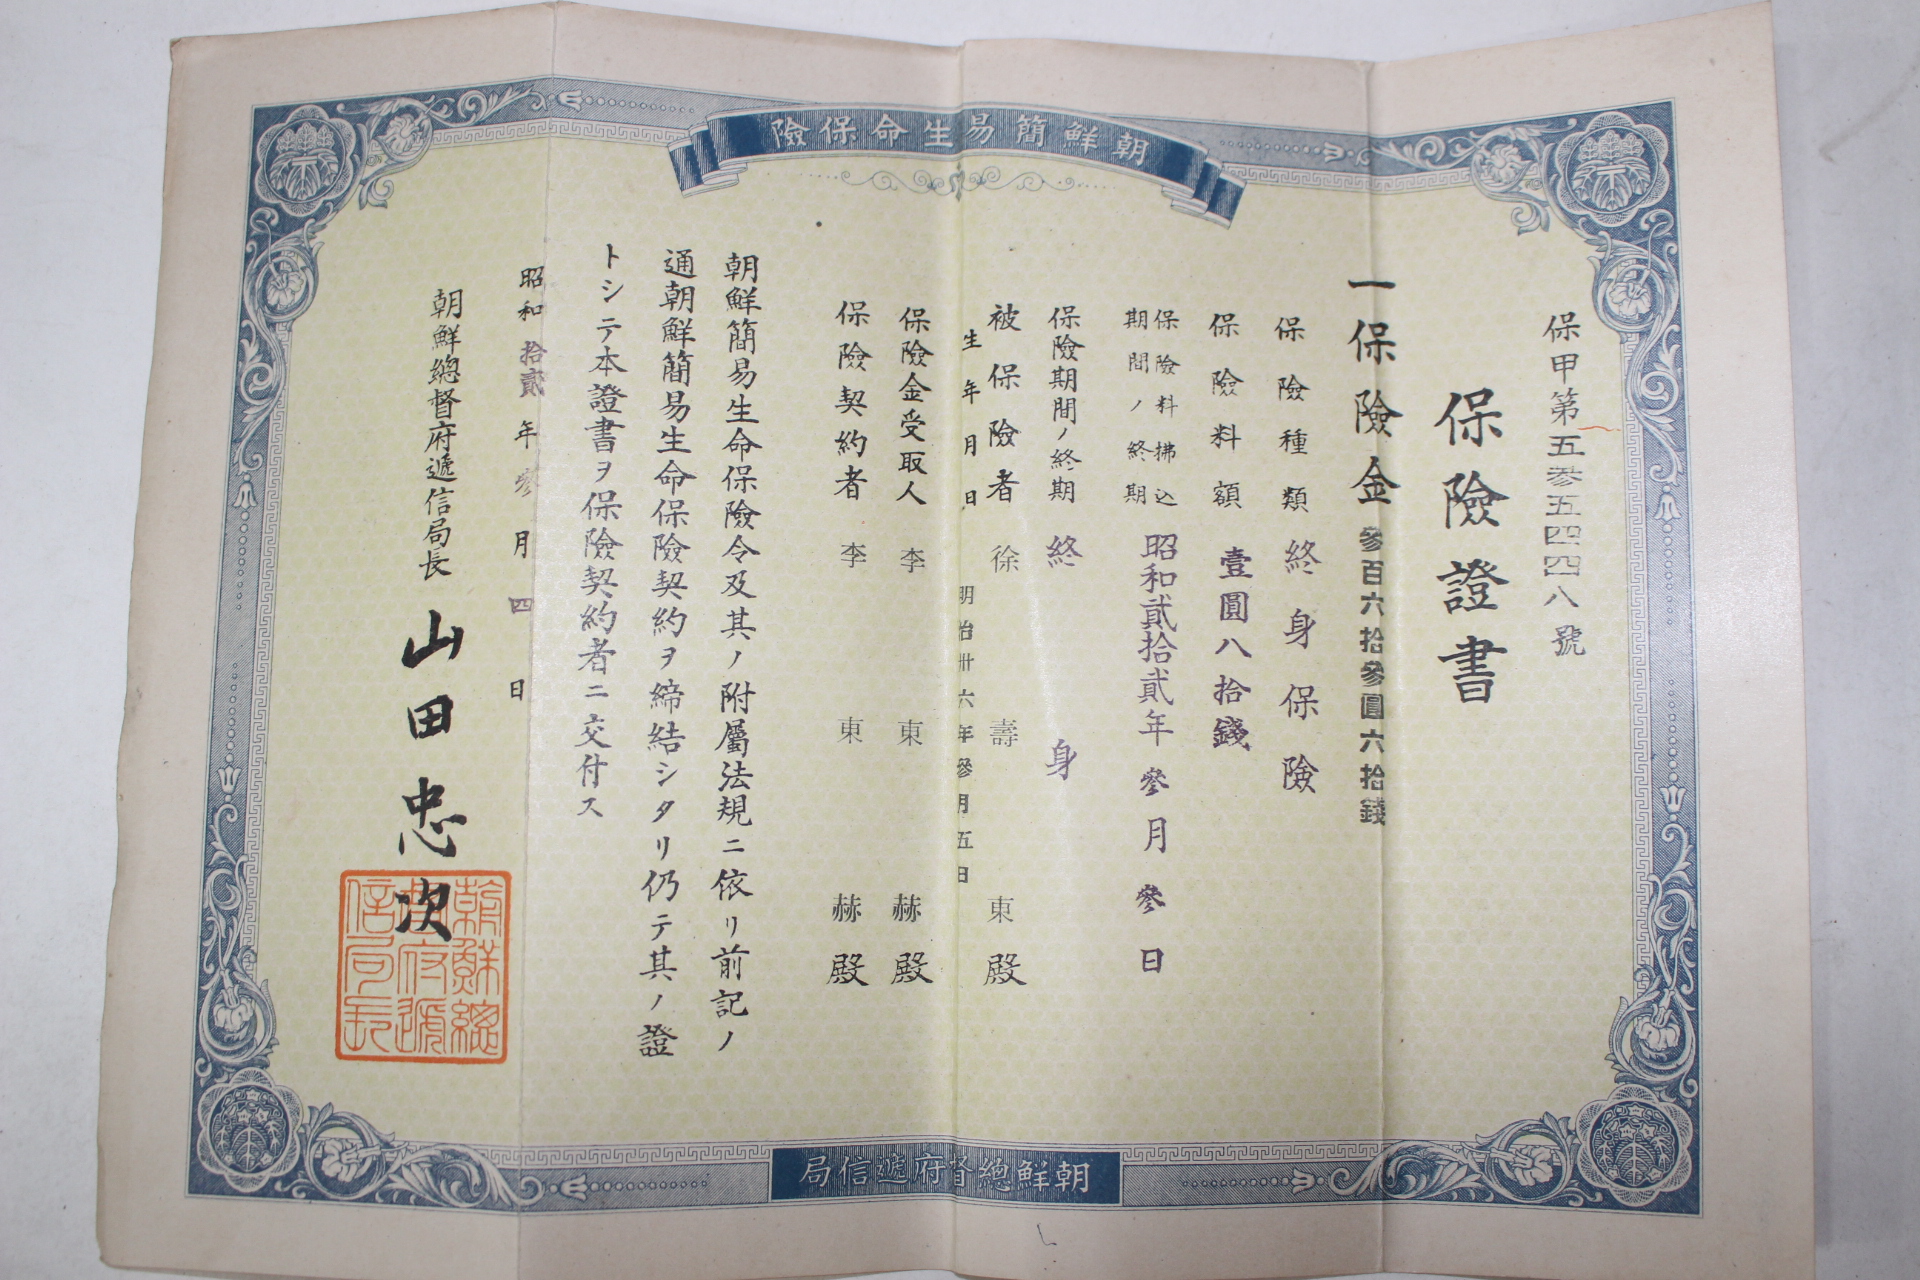 朝鮮簡易生命保險
保甲第五參五四四八號
保險證書
一保險金參百六拾參圓六拾錢
保險種類終身保險
保險料額壹圓八拾錢
保險料拂込
期間ノ終期
昭和貳拾貳年參月參日
保險期間ノ終期終身
被保險者徐壽東殿
生年月日明治卅六年參月五日
保險金受取人李東赫殿
保險契約者李東赫殿
朝鮮簡易生命保險令及其ノ附屬法規ニ依リ前記ノ
通朝鮮簡易生命保險契約ヲ締結シタリ仍テ其ノ證
トシテ本證書ヲ保險契約者ニ交付ス
昭和拾貳年參月四日
朝鮮總督府遞信局長山田忠次
朝鮮總督府遞信局長
朝鮮總督府遞信局